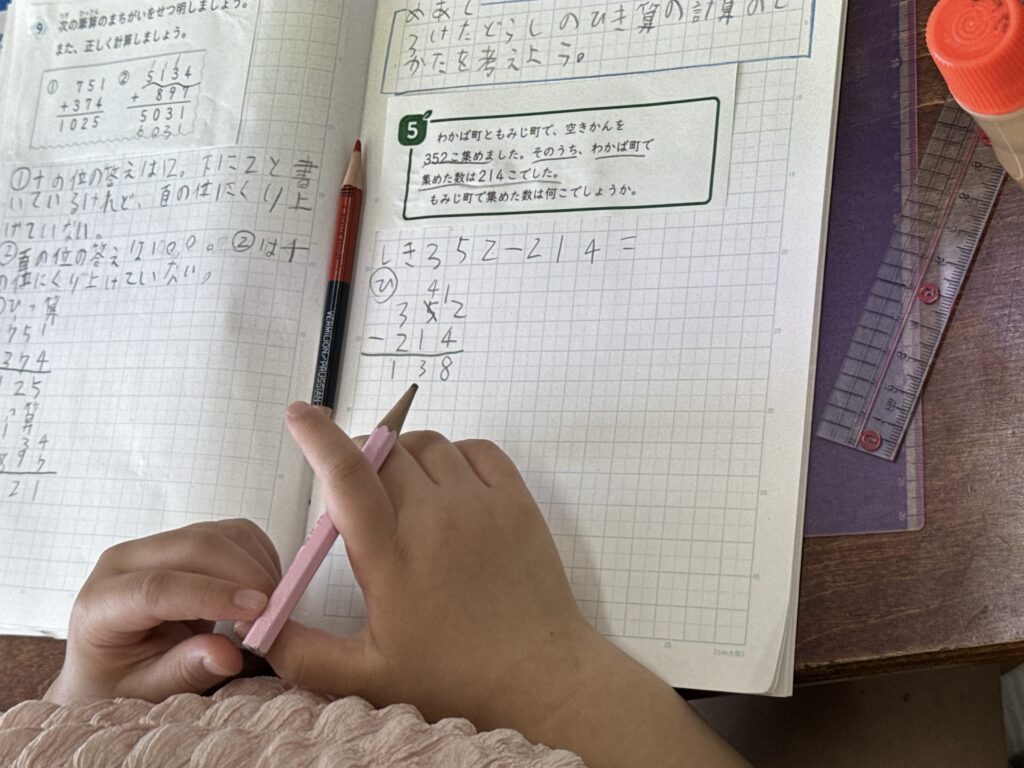 9 次の筆算のまちがいをせつ明しましょう。
また、正しく計算しましょう。
① 751
+374
1025
② 5134
+ 897
5031
6031
①十の位の答えは12。
書
いているけれど、百の位にくり上
げていない。
②百の位の答えは10。 ②は千
の位にくり上げていない。
ひっ算
751
374
125
34
897
21
めあて
うけたどうしのひき算の計算のし
かたを考えよう。
5 わかば町ともみじ町で、空きかんを
352こ集めました。そのうち、わかば町で
集めた数は214こでした。
もみじ町で集めた数は何こでしょうか。
しき352-214=
ひ
41
352
-214
138
VERMILION/PRUSSIAN